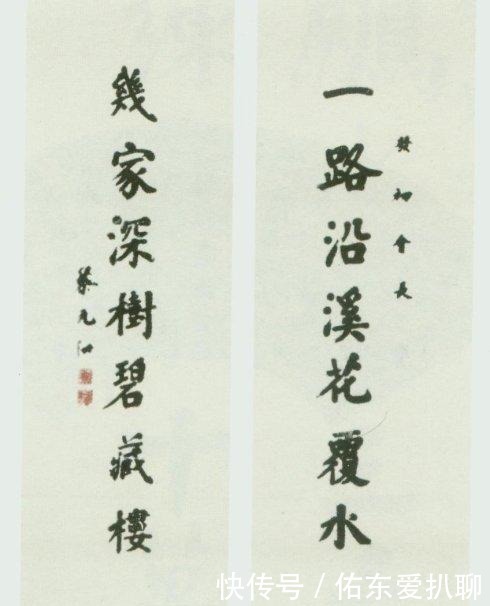 一路沿溪花覆水
幾家深樹碧藏樓
初會長
蔡元
快传号 / 佑东爱扒聊